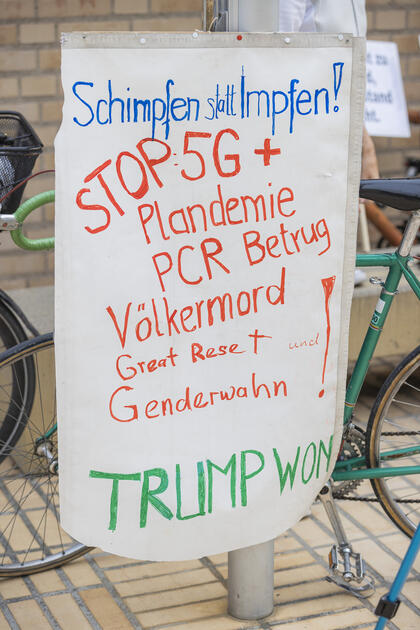 Schimpfen statt Impfen!
STOP: 5G +
Plandemie
PCR Betrug
Völkermord
Great Reset und
Genderwahn !
TRUMP WON